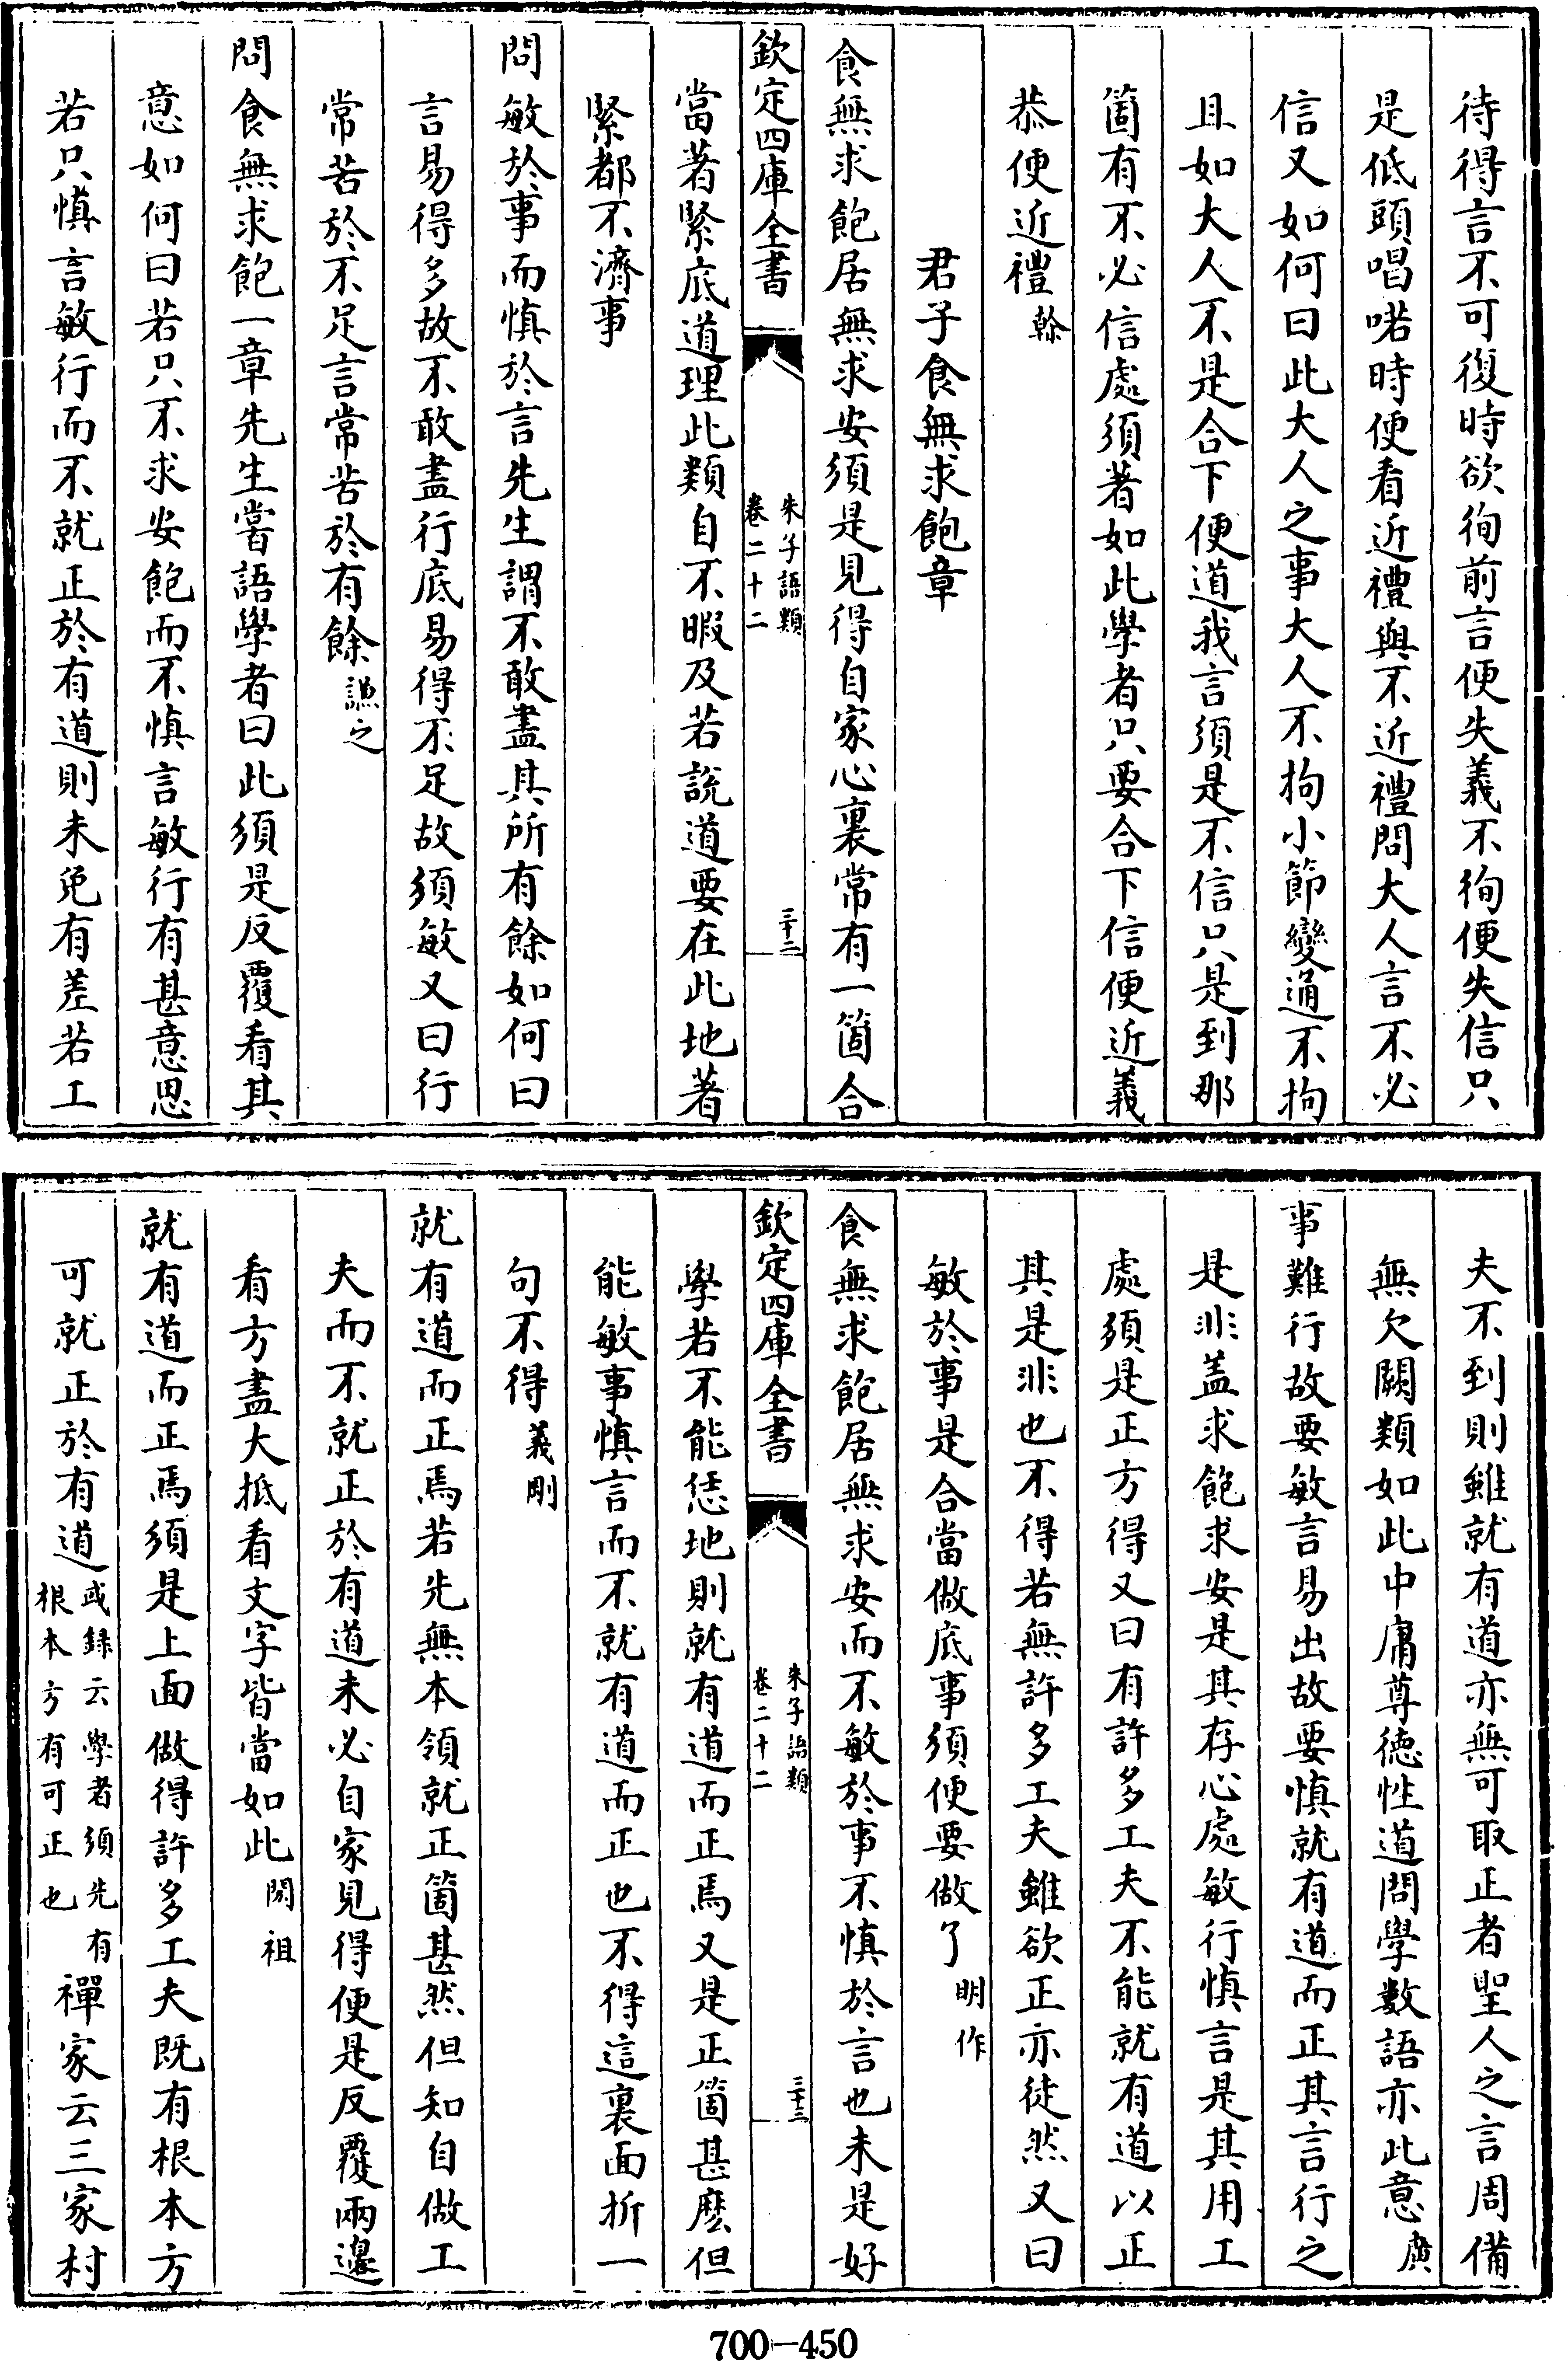 待得言不可復時欲徇前言便失義不徇便失信只
是低頭唱喏時便看近禮與不近禮問大人言不必
信又如何曰此大人之事大人不拘小節變通不拘
且如大人不是合下便道我言須是不信只是到那
箇有不必信處須著如此學者只要合下信便近義
恭便近禮榦
君子食無求飽章
食無求飽居無求安須是見得自家心裏常有一箇合
欽定四庫全書
朱子語類
卷二十二
三十二
當著緊底道理此類自不暇及若說道要在此地著
緊都不濟事
問敏於事而慎於言先生謂不敢盡其所有餘如何曰
言易得多故不敢盡行底易得不足故須敏又曰行
常苦於不足言常苦於有餘謙之
問食無求飽一章先生嘗語學者曰此須是反覆看其
意如何曰若只不求安飽而不慎言敏行有甚意思
若只慎言敏行而不就正於有道則未免有差若工
夫不到則雖就有道亦無可取正者聖人之言周備
無欠闕類如此中庸尊德性道問學數語亦此意廣
事難行故要敏言易出故要慎就有道而正其言行之
是非盖求飽求安是其存心處敏行慎言是其用工
處須是正方得又曰有許多工夫不能就有道以正
其是非也不得若無許多工夫雖欲正亦徒然又曰
敏於事是合當做底事須便要做了明作
食無求飽居無求安而不敏於事不慎於言也未是好
欽定四庫全書
朱子語類
卷二十二
三十三
學若不能恁地則就有道而正焉又是正箇甚麽但
能敏事慎言而不就有道而正也不得這裏面折一
句不得義剛
就有道而正焉若先無本領就正箇甚然但知自做工
夫而不就正於有道未必自家見得便是反覆兩邊
看方盡大抵看文字皆當如此閎祖
就有道而正焉須是上面做得許多工夫既有根本方
可就正於有道或録云學者須先有根本方有可正也禪家云三家村
700-450